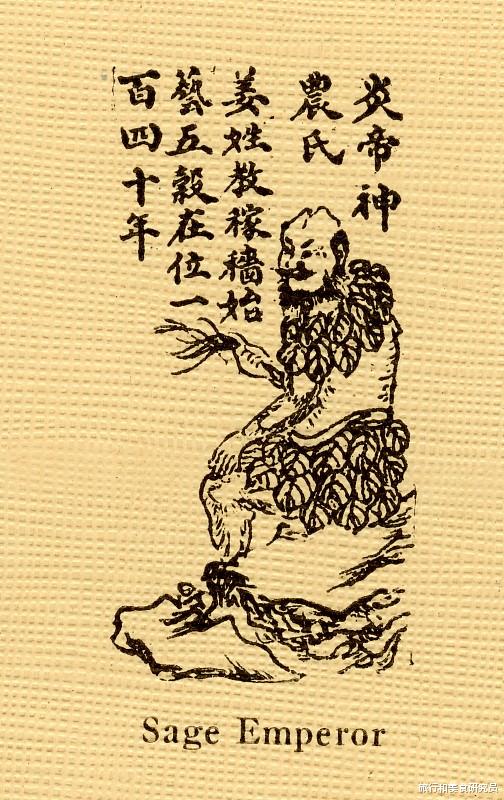 炎帝神
農氏
姜姓教稼穡始
藝五穀在位一
百四十年
Sage Emperor
旅行和美食研究员